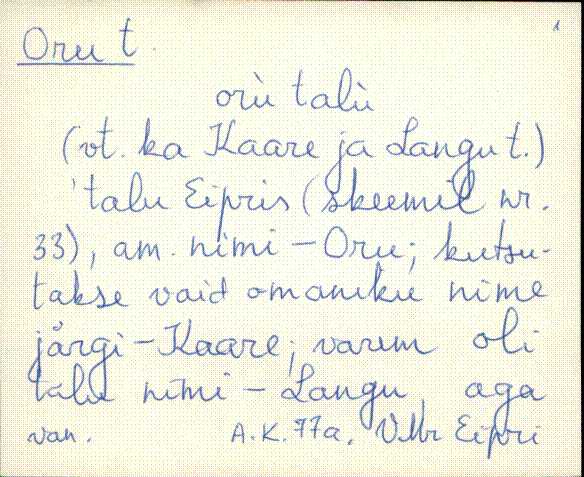 1
Oru t.
orù talù
(vt. ka Kaare ja Langu t.)
'talu Eipris (skeemil nr.
33), am. nimi – Oru; kutsu-
takse vaid omaniku nime
järgi – Kaare; varem oli
talu nimi – Langu, aga
van. A.K. 77a. VMr Eipri